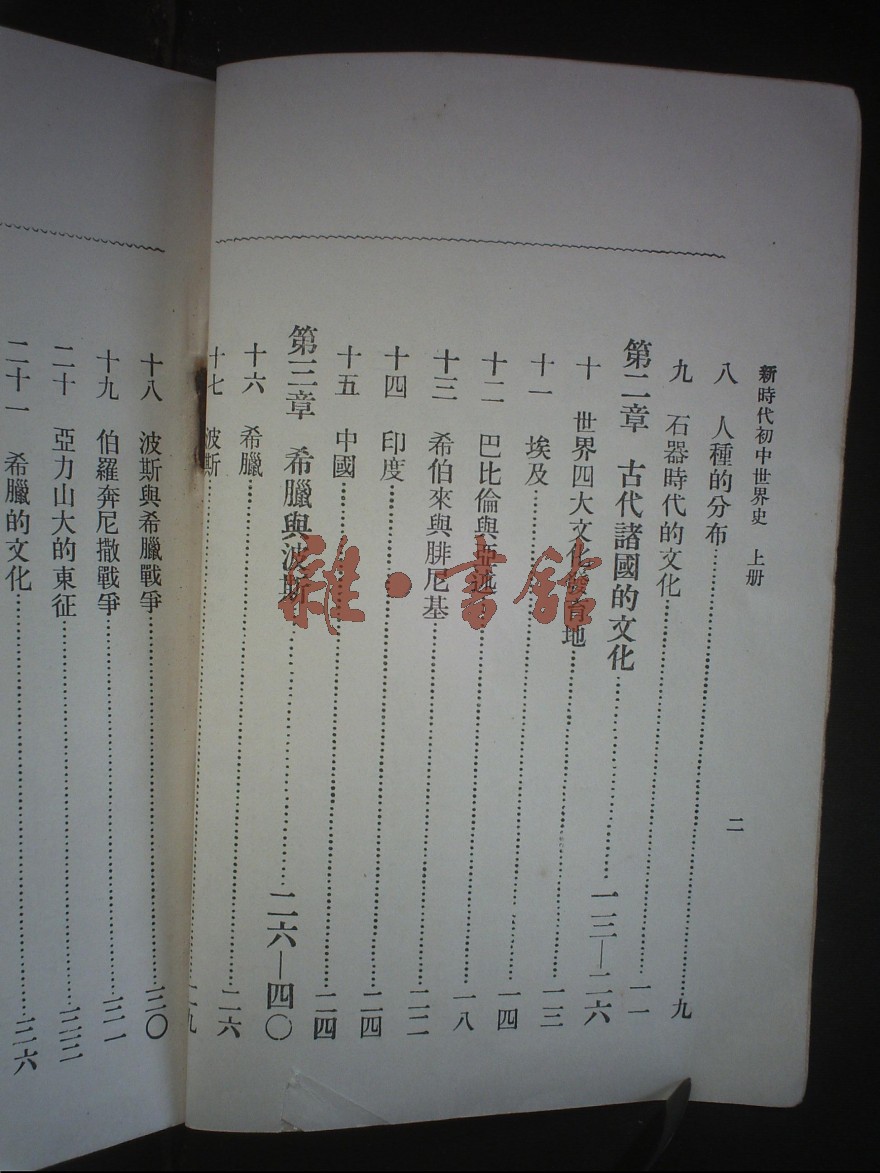 新時代初中世界史　上册
二
八　人種的分布……九
九　石器時代的文化……一一
第二章　古代諸國的文化……一三—二六
十　世界四大文化發育地……一三
十一　埃及……一四
十二　巴比倫與亞述……一八
十三　希伯來與腓尼基……二二
十四　印度……二四
十五　中國……二四
第三章　希臘與波斯……二六—四〇
十六　希臘……二六
十七　波斯……二九
十八　波斯與希臘戰爭……三〇
十九　伯羅奔尼撒戰爭……三一
二十　亞力山大的東征……三三
二十一　希臘的文化……三六
雜·書館